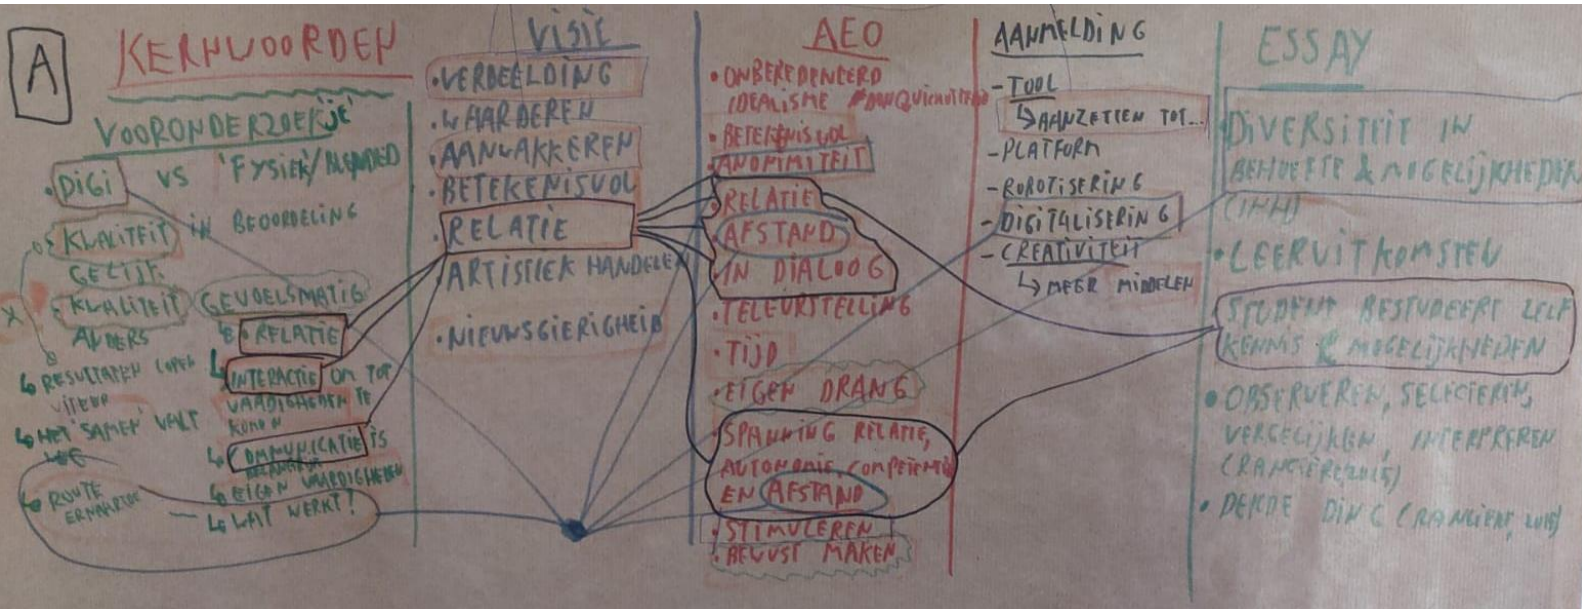 A
KERNWOORDEN
VOORONDERZOEKJE'
• DIGI VS 'FYSIEK'/BLENDED
KWALITEIT IN BEOORDELING
GELIJK.
KWALITEIT
ANDERS
RESULTATEN LOPEN
VITEUR
HET 'SAMEN' VALT
WEG
ROUTE
ERNAARTOE
GEVOELSMATIG
• RELATIE
INTERACTIE OM TOT
VAARDIGHEDEN TE
KOMEN
COMMUNICATIE IS
BELANGRIJK
EIGEN VAARDIGHEDEN
WAT WERKT?
VISIE
• VERBEELDING
• WAARDEREN
• AANWAKKEREN
• BETEKENISVOL
• RELATIE
ARTISTIEK HANDELEN
• NIEUWSGIERIGHEID
AEO
• ONBEREDENEERD
IDEALISME
• BETEKENISVOL
• ANONIMITEIT
• RELATIE
• AFSTAND
• IN DIALOOG
• TELEURSTELLING
• TIJD
• EIGEN DRANG
• SPANNING RELATIE,
AUTONOMIE, COMPETENTIE
EN AFSTAND
• STIMULEREN
• BEWUST MAKEN
AANMELDING
- TOOL
AANZETTEN TOT...
- PLATFORM
- ROBOTISERING
- DIGITALISERING
- CREATIVITEIT
MEER MIDDELEN
ESSAY
• DIVERSITEIT IN
BEHOEFTE & MOGELIJKHEDEN
(INH)
• LEERUITKOMSTEN
STUDENT BESTUDEERT ZELF
KENNIS & MOGELIJKHEDEN
• OBSERVEREN, SELECTEREN,
VERGELIJKEN, INTERPREREN
(RANCIÈRE, 2015)
• DERDE DING (RANCIÈRE, 2015)